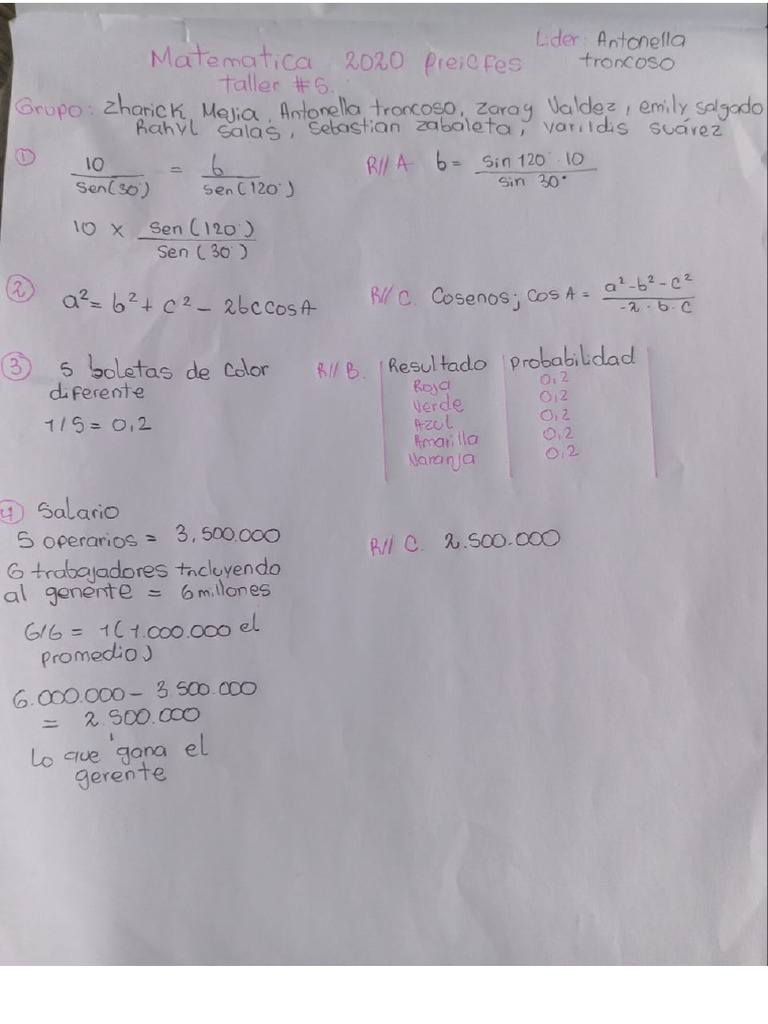 Lider: Antonella
troncoso
Matematica 2020 preicfes
taller #5.
Grupo: Zharick Mejia, Antonella troncoso, Zaray Valdez, emily salgado
Rahyl Salas, Sebastian Zabaleta, Varildis Suárez
1 10 / Sen(30°) = b / Sen(120°) R// A b = Sin 120° · 10 / Sin 30°
10 x Sen(120°) / Sen(30°)
2 a² = b² + c² - 2bccosA R// C. Cosenos; cos A = a² - b² - c² / -2 · b · c
3 5 boletas de color
diferente
1/5 = 0,2
R// B. Resultado probabilidad
Roja 0,2
Verde 0,2
Azul 0,2
Amarilla 0,2
Naranja 0,2
4 Salario
5 operarios = 3,500.000 R// C. 2.500.000
6 trabajadores Incluyendo
al genente = 6 millones
6/6 = 1 (1.000.000 el
promedio)
6.000.000 - 3.500.000
= 2.500.000
lo que gana el
gerente